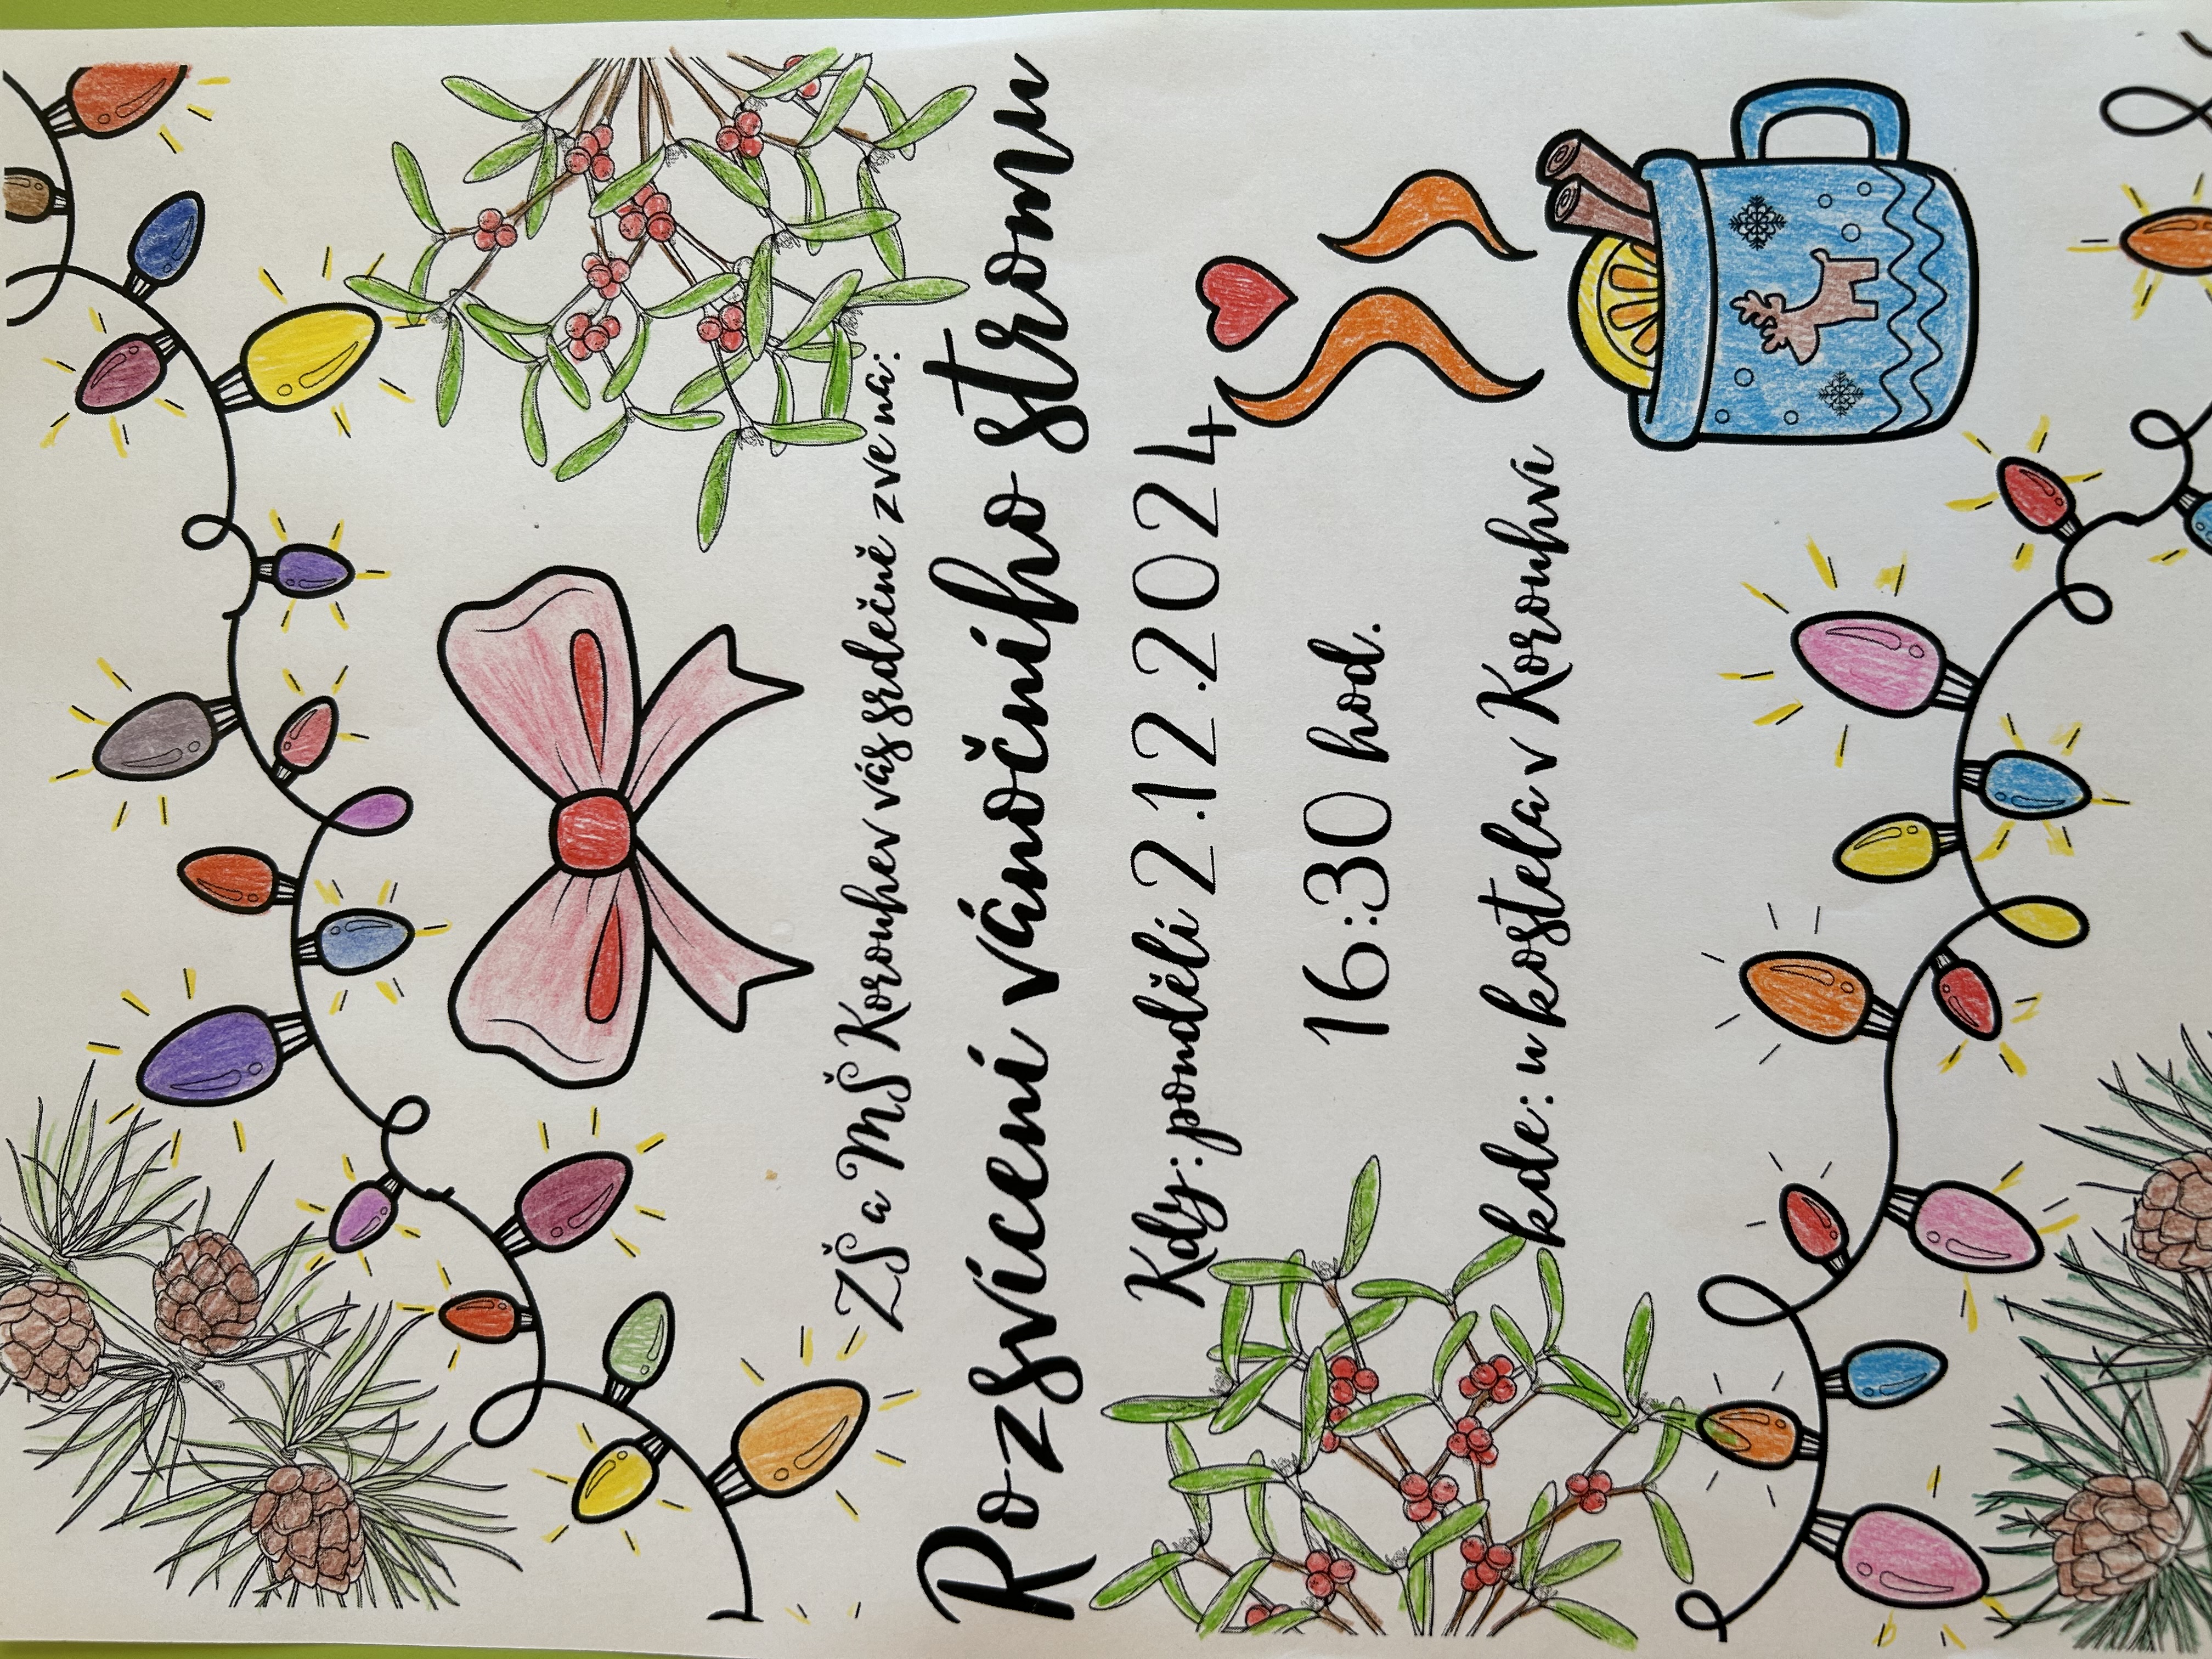 ZŠ a MŠ Korouhev vás srdečně zve na:
Rozsvícení vánočního stromu
Kdy: pondělí 2.12.2024
16:30 hod.
kde: u kostela v Korouhvi